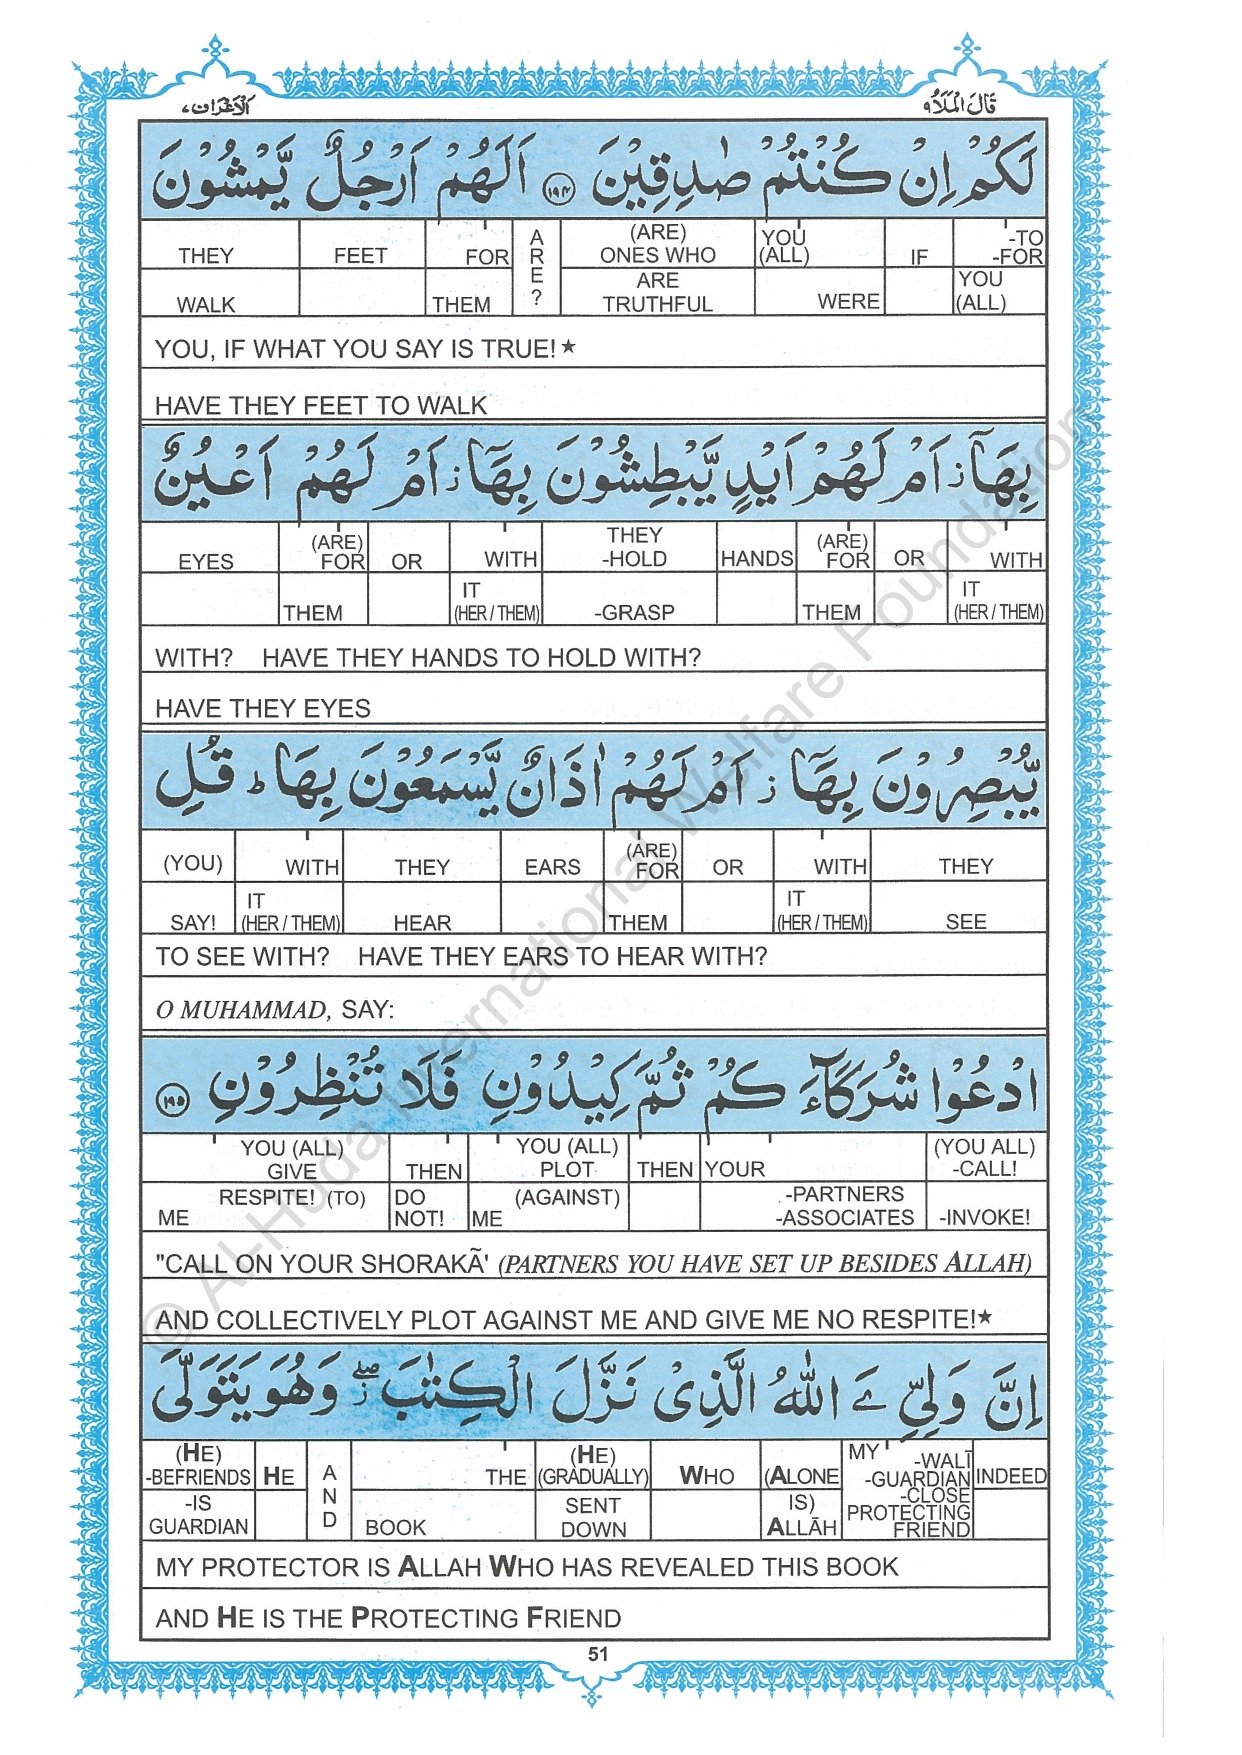 قَالَ الْمَلَاُ ٩
الْاَعْرَاف ٧
لَكُمْ اِنْ كُنْتُمْ صٰدِقِيْنَ ١٩٤ اَلَهُمْ اَرْجُلٌ يَّمْشُوْنَ
THEY FEET FOR ARE? (ARE) ONES WHO YOU (ALL) IF -TO -FOR
WALK THEM ARE TRUTHFUL WERE YOU (ALL)
YOU, IF WHAT YOU SAY IS TRUE!★
HAVE THEY FEET TO WALK
بِهَآ ز اَمْ لَهُمْ اَيْدٍ يَّبْطِشُوْنَ بِهَآ ز اَمْ لَهُمْ اَعْيُنٌ
EYES (ARE) FOR OR WITH THEY -HOLD HANDS (ARE) FOR OR WITH
THEM IT (HER / THEM) -GRASP THEM IT (HER / THEM)
WITH? HAVE THEY HANDS TO HOLD WITH?
HAVE THEY EYES
يُّبْصِرُوْنَ بِهَآ ز اَمْ لَهُمْ اٰذَانٌ يَّسْمَعُوْنَ بِهَا ط قُلِ
(YOU) WITH THEY EARS (ARE) FOR OR WITH THEY
SAY! IT (HER / THEM) HEAR THEM IT (HER / THEM) SEE
TO SEE WITH? HAVE THEY EARS TO HEAR WITH?
O MUHAMMAD, SAY:
ادْعُوْا شُرَكَآءَ كُمْ ثُمَّ كِيْدُوْنِ فَلَا تُنْظِرُوْنِ ١٩٥
YOU (ALL) GIVE THEN YOU (ALL) PLOT THEN YOUR (YOU ALL) -CALL!
ME RESPITE! (TO) DO NOT! ME (AGAINST) -PARTNERS -ASSOCIATES -INVOKE!
"CALL ON YOUR SHORAKÃ' (PARTNERS YOU HAVE SET UP BESIDES ALLAH)
AND COLLECTIVELY PLOT AGAINST ME AND GIVE ME NO RESPITE!★
اِنَّ وَلِيِّ ےَ اللّٰهُ الَّذِيْ نَزَّلَ الْكِتٰبَ وَهُوَ يَتَوَلَّى
(HE) -BEFRIENDS HE AND THE (HE) (GRADUALLY) WHO (ALONE MY -WALĪ -GUARDIAN INDEED
-IS GUARDIAN BOOK SENT DOWN IS) ALLĀH -CLOSE PROTECTING FRIEND
MY PROTECTOR IS ALLAH WHO HAS REVEALED THIS BOOK
AND HE IS THE PROTECTING FRIEND
51
© Al-Huda International Welfare Foundation